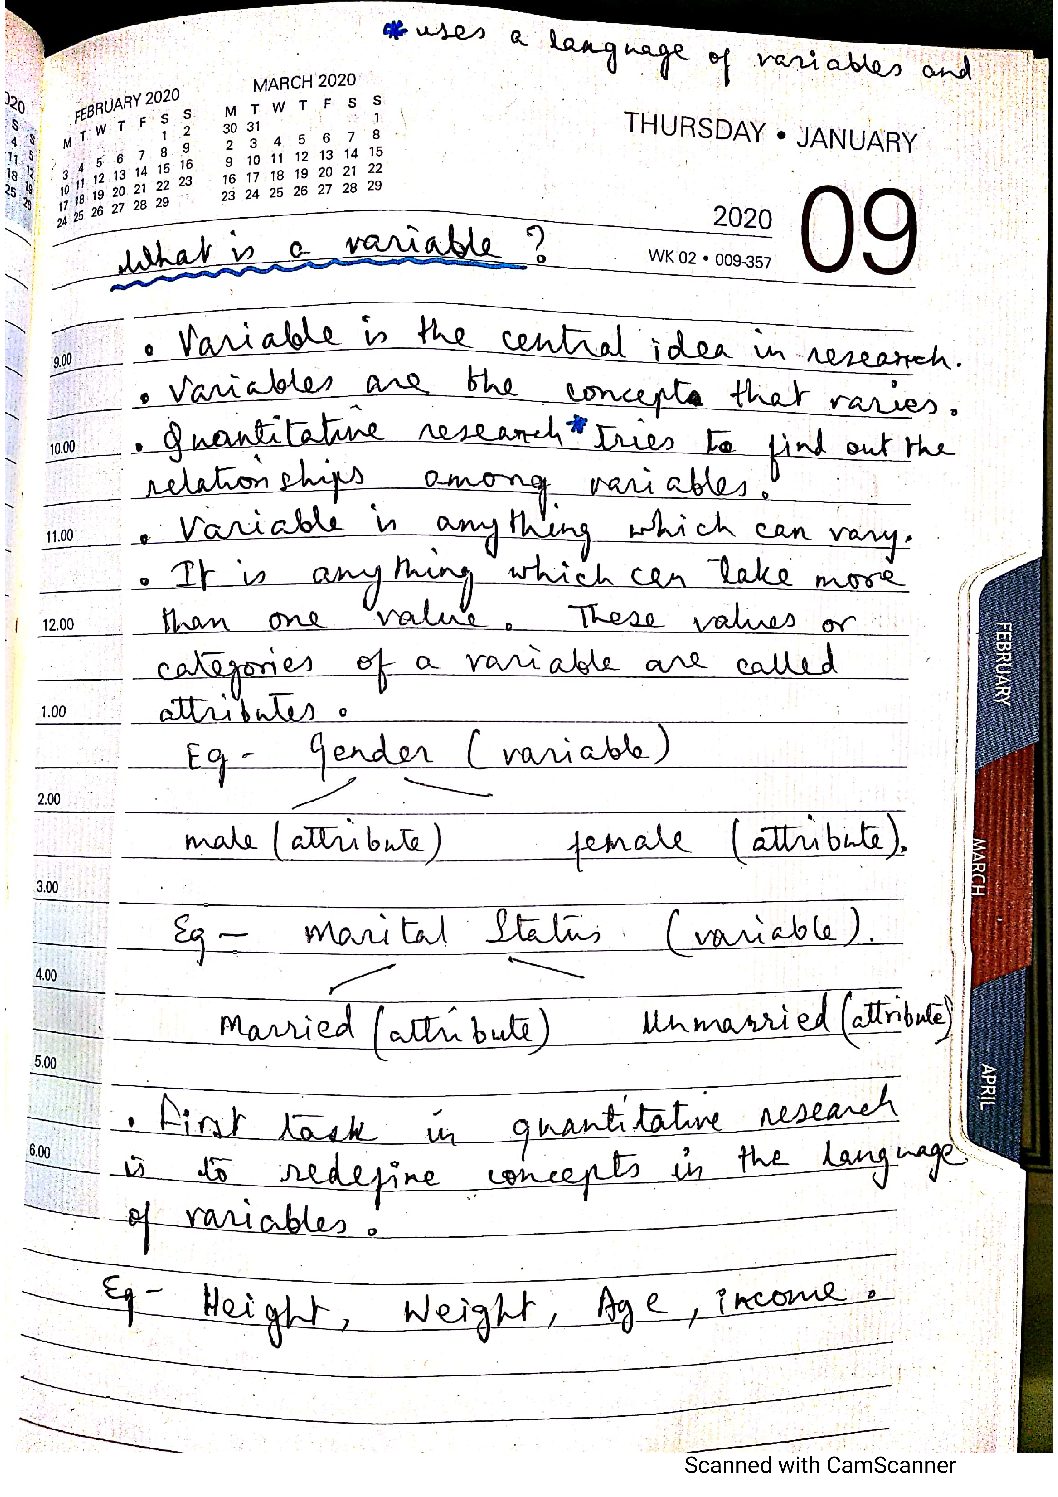 *uses a language of variables and
020
S S
4 5
11 12
18 19
25 26
FEBRUARY 2020
M T W T F S S
1 2
3 4 5 6 7 8 9
10 11 12 13 14 15 16
17 18 19 20 21 22 23
24 25 26 27 28 29
MARCH 2020
M T W T F S S
30 31 1
2 3 4 5 6 7 8
9 10 11 12 13 14 15
16 17 18 19 20 21 22
23 24 25 26 27 28 29
THURSDAY • JANUARY
2020 09
WK 02 • 009-357
What is a variable ?
9.00 • Variable is the central idea in research.
• Variables are the concepts that varies.
10.00 • Quantitative research* tries to find out the
relationships among variables.
11.00 • Variable is anything which can vary.
• It is anything which can take more
12.00 than one value. These values or
categories of a variable are called
1.00 attributes.
Eg - Gender (variable)
2.00
male (attribute) female (attribute).
3.00
Eg - Marital Status. (variable).
4.00
Married (attribute) Unmarried (attribute)
5.00
• First task in quantitative research
6.00 is to redefine concepts in the language
of variables.
Eg - Height, Weight, Age, income.
FEBRUARY
MARCH
APRIL
Scanned with CamScanner